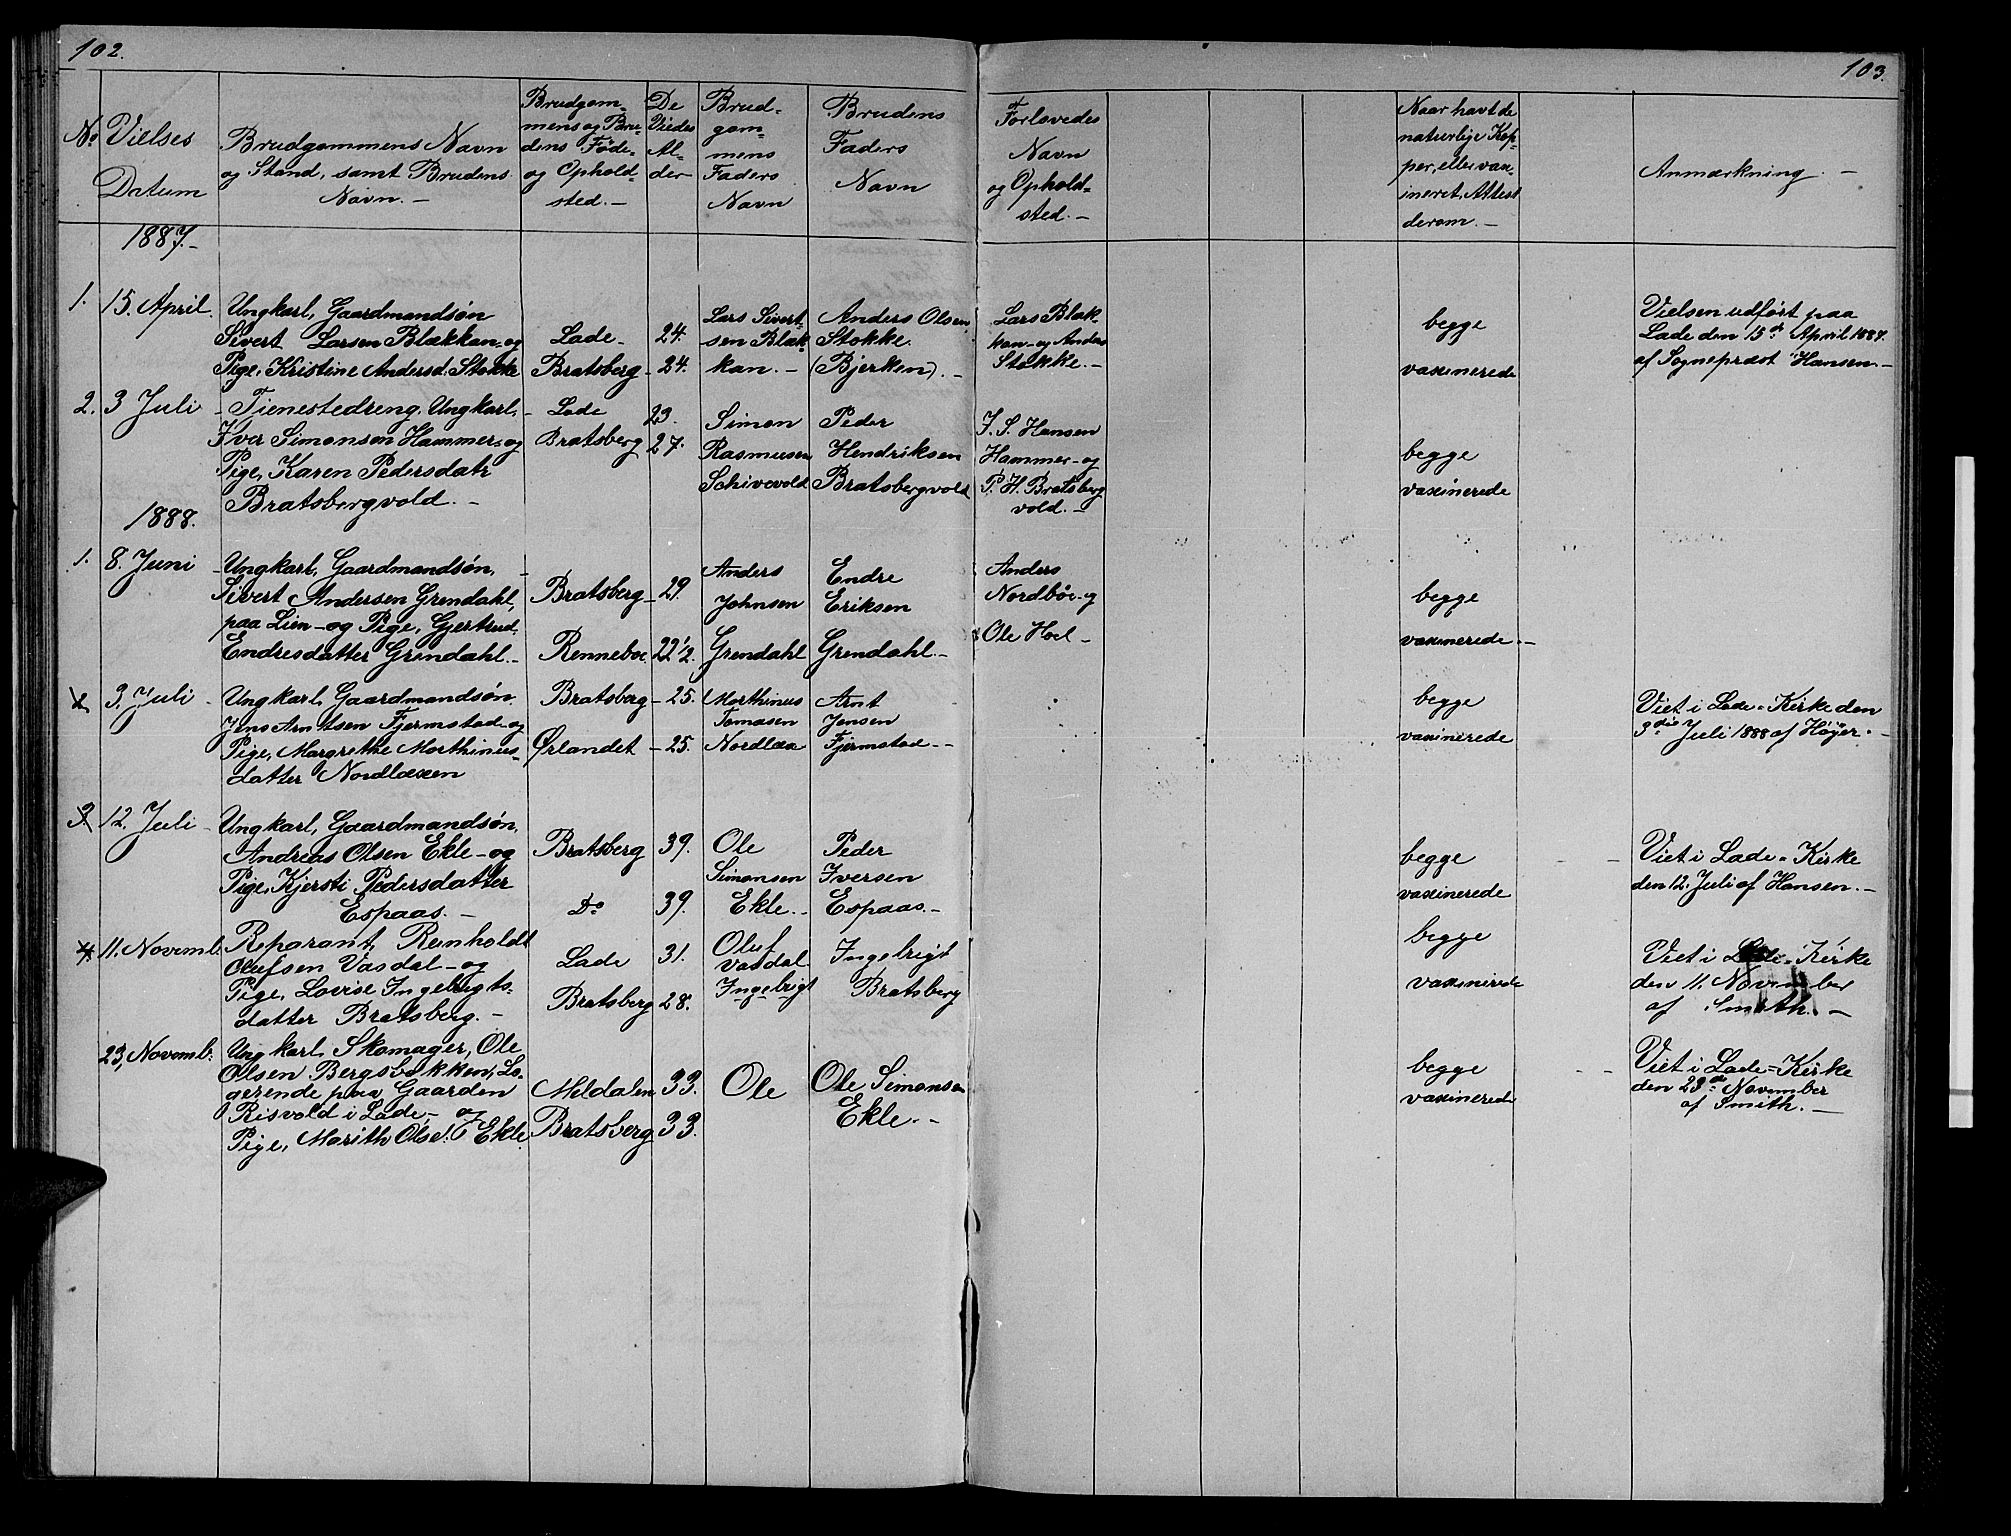 102.
103.
No Vielses Datum
Brudgommens Navn og Stand, samt Brudens Navn. -
Brudgom-mens og Bru-dens Føde- og Ophold-sted. -
De Viedes Al-der
Brud-gom-mens Faders Navn
Brudens Faders Navn
Forlovedes Navn og Ophold-sted. -
Naar havt de naturlige Kop-per, eller vax-ineret, Attest derom. -
Anmærkning. -
1887. -
1. 15. April.
Ungkarl, Gaardmandsøn
Sivert Larsen Blækkan - og
Pige, Kristine Andersd. Stokke
Lade -
Bratsberg -
24.
24.
Lars Sivert-
sen Blæk-
kan. -
Anders Olsen
Stokke.
(Bjerken). -
Lars Blæk-
kan - og Anders
Stokke. -
begge
vaxinerede
Vielsen udført paa
Lade den 15de April 1887.
af Sognepræst Hansen. -
2. 3 Juli -
Tienestedreng, Ungkarl,
Iver Simonsen Hammer - og
Pige, Karen Pedersdatr
Bratsbergvold. -
Lade
Bratsberg
23.
27.
Simon
Rasmusen
Schivevold
Peder
Hendriksen
Bratsbergvold
J. S. Hansen
Hammer - og
P. H. Bratsberg
vold. -
begge
vaxinerede
1888.
1. 8. Juni -
Ungkarl, Gaardmandsøn,
Sivert Andersen Grendahl,
paa Lien - og Pige, Gjertrud,
Endresdatter Grendahl. -
Bratsberg -
Renneboe
29.
22 1/2.
Anders
Johnsen
Grendahl
Endre
Eriksen
Grendahl. -
Anders
Nordbøe - og
Ole Hoel -
begge
vaxinerede. -
2. 3. Juli -
Ungkarl, Gaardmandsøn
Jens Arntsen Fjermstad - og
Pige, Margrethe Morthinus-
datter Nordlaxen
Bratsberg -
Ørlandet -
25.
25.
Morthinus
Tomasen
Nordlax
Arnt
Jensen
Fjermstad. -
begge
vaxinerede
Viet i Lade - Kirke den
3die Juli 1888 af Høyer. -
3. 12. Juli -
Ungkarl, Gaardmandsøn,
Andreas Olsen Ekle - og
Pige, Kjersti Pedersdatter
Espaas. -
Bratsberg
Do
39.
39.
Ole
Simonsen
Ekle. -
Peder
Iversen
Espaas. -
begge
vaxinerede
Viet i Lade - Kirke
den 12. Juli af Hansen. -
4. 11. Novemb.
Reparant, Reinholdt
Olufsen Vasdal - og
Pige, Lovise Ingebrigts-
datter Bratsberg. -
Lade
Bratsberg
31.
28.
Oluf
Vasdal
Ingebrigt
Ingebrigt
Bratsberg
begge
vaxinerede
Viet i Lade - Kirke
den 11. November
af Smith. -
23, Novemb.
Ungkarl, Skomager, Ole
Olsen Bergsbakken, Lo-
gerende paa Gaarden
Risvold i Lade, - og
Pige, Marith Olsd. Ekle.
Meldalen
Bratsberg
33.
33.
Ole
Ole Simonsen
Ekle. -
begge
vaxinerede
Viet i Lade - Kirke
den 23de November
af Smith. -